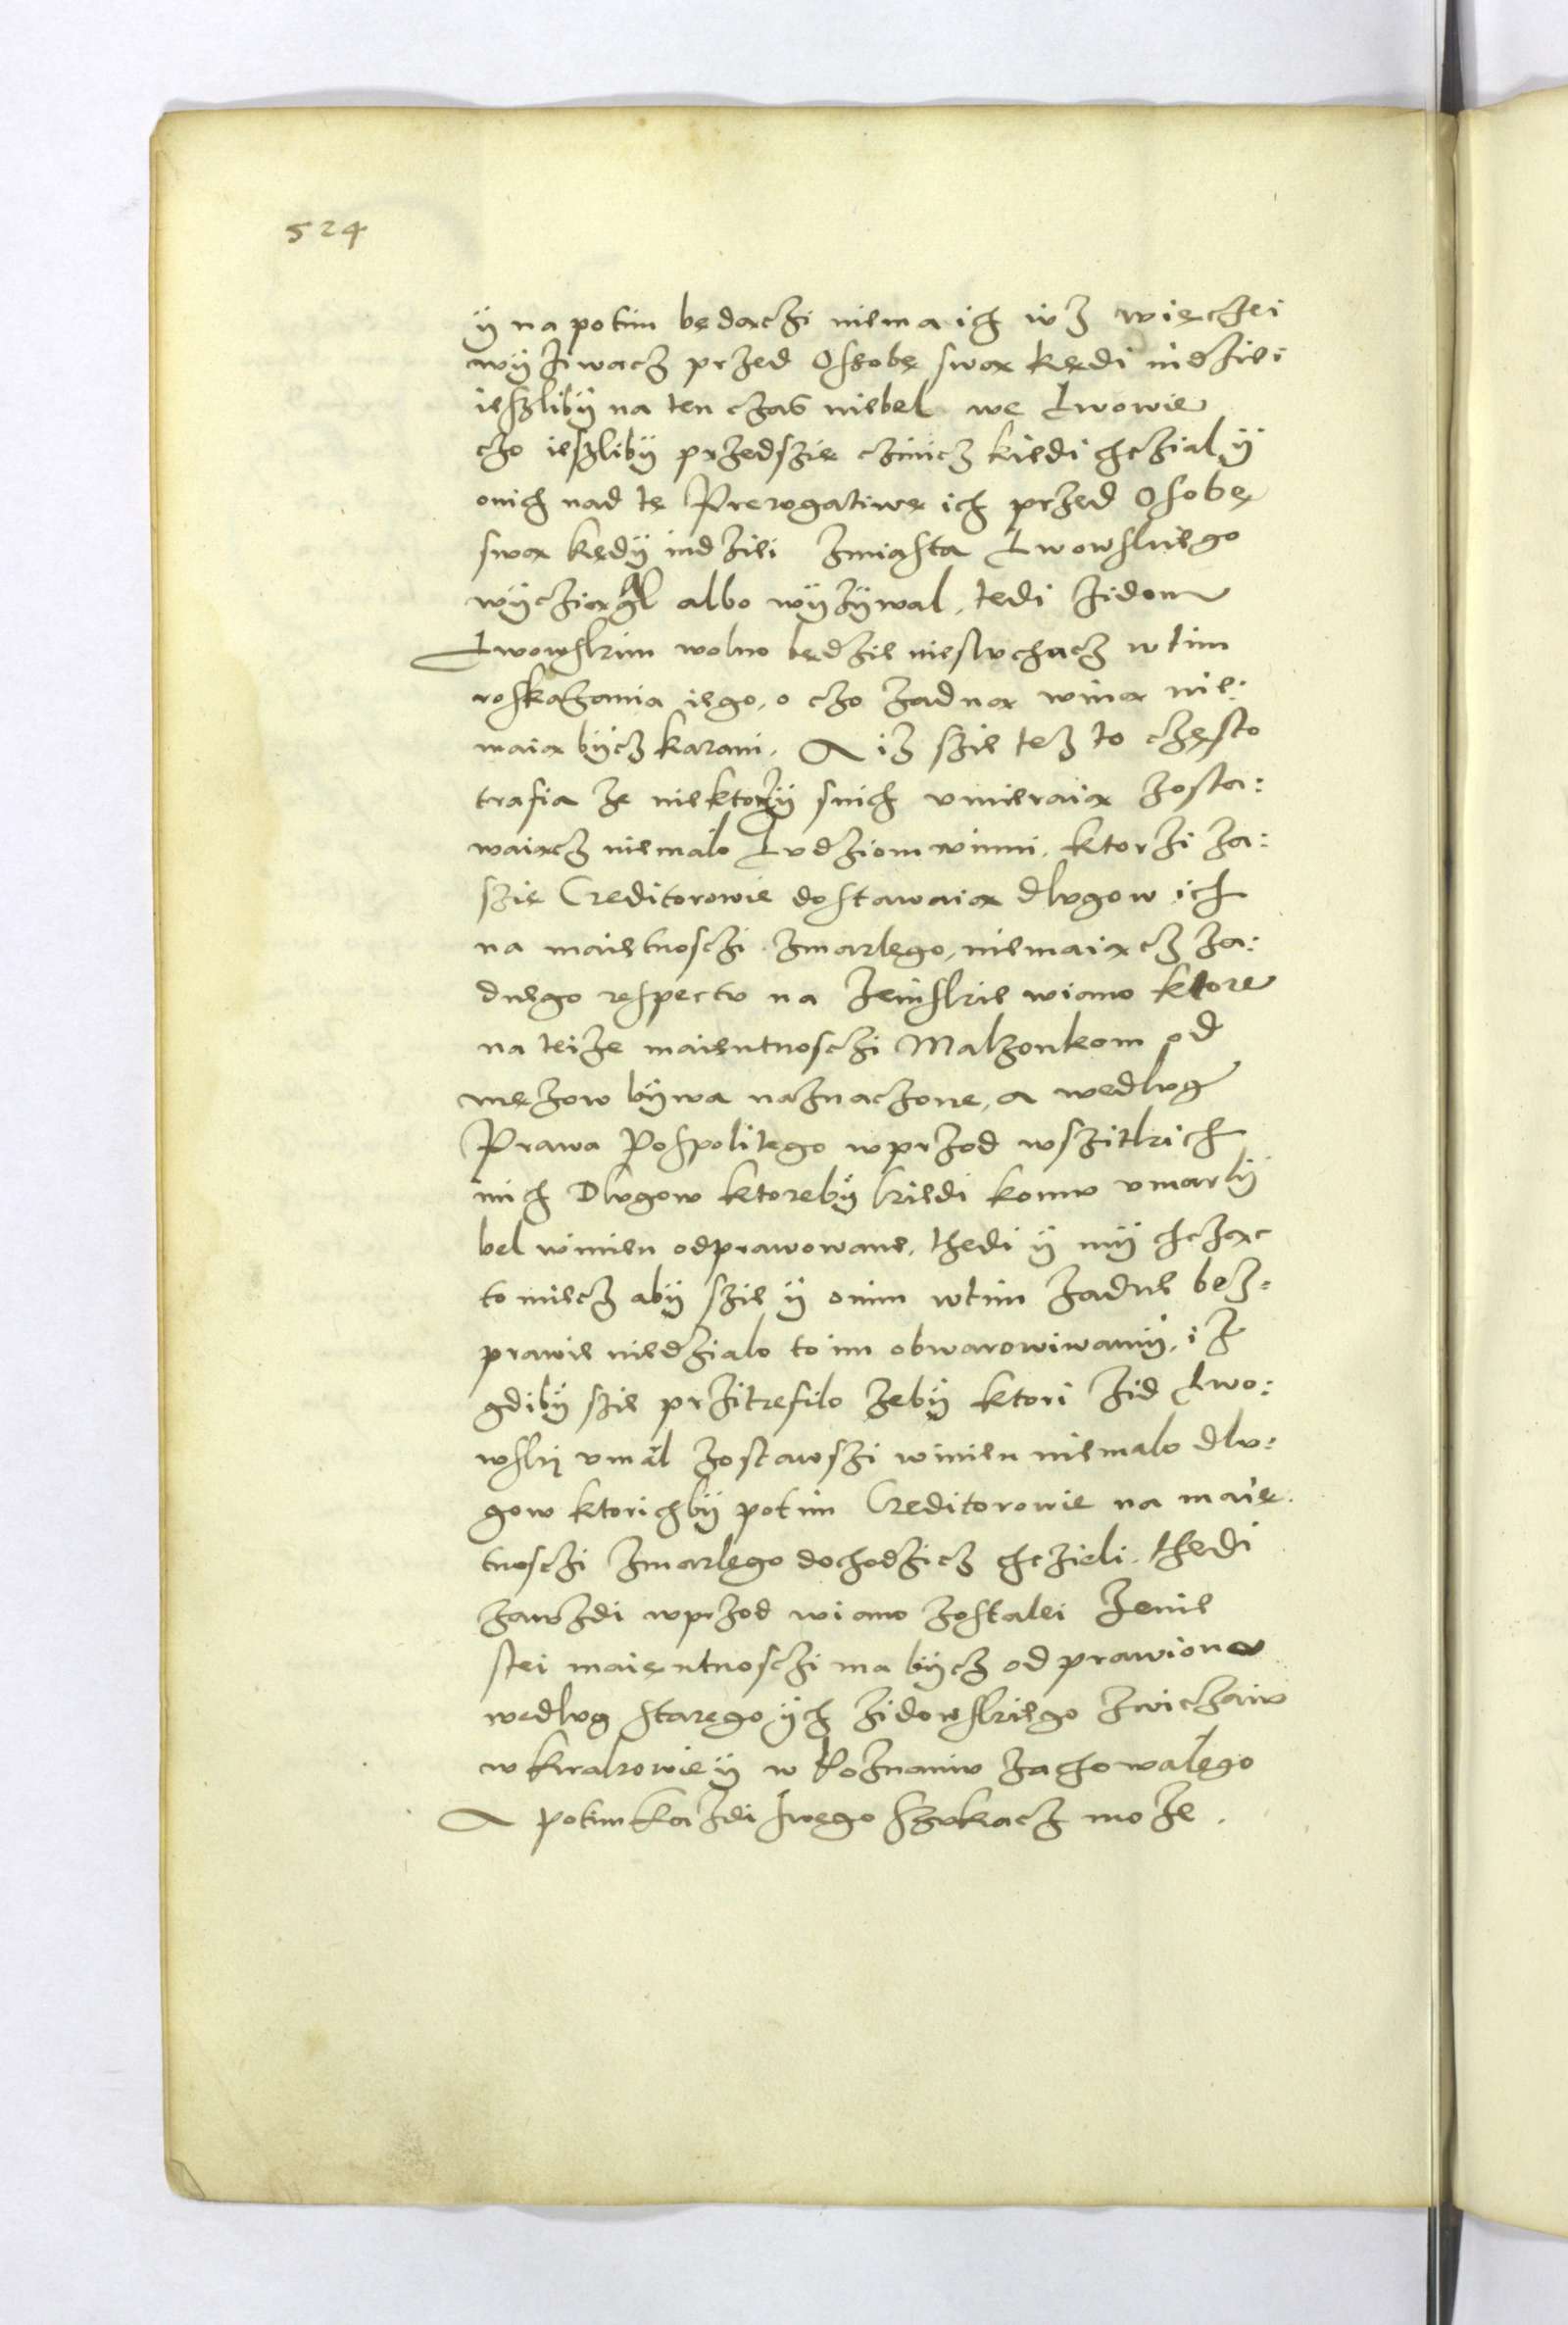 524
ÿ na potim będaczi niema ich iuz więczei
wÿziwacz przed Ossobę swa kędi indziei
ieszlibÿ na ten czas niebel we Lwowie
czo ieszlibÿ przedszię czinicz kiedi chczial ÿ
onich nad tę Prerogatiwę ich przed Osobę
swa kędÿ indziei zmiasta Lwowskiego
wÿcziagal albo wÿzÿwal, tedi zidom
Lwowskim wolno będzie niesluchacz wtim
roskazania iego, o czo zadna wina nie:
maia bÿcz karani. A iz szie tez to często
trafia ze niektorzÿ snich umieraia zosta:
waiacz niemalo Ludziom winni, ktorzi za:
szię Creditorowie dostawaia dlugow ich
na maietnosczi zmarlego, niemaiacz za:
dnego respectu na zeinskie wiano ktore
na teize maientnosczi Malzonkom od
męzow bÿwa naznaczone, a wedlug
Prawa Pospolitego wprzod wszitkich
inich Dlugow ktorebÿ kiedi komu umarlÿ
bel winien odprawowane, thedi ÿ mÿ chczac
to miecz abÿ szie ÿ onim wtim zadne bez:
prawie niedzialo to im obwarowiwamÿ, iz
gdibÿ szie przitrefilo zebÿ ktori zid Lwo:
wski umarl zostawszi winien niemalo dlu:
gow ktorichbÿ potim Creditorowie na maię
tnosczi zmarlego dochodzicz chczieli, thedi
zawzdi wprzod wiano zostalei zenie
stei maięntnosczi ma bÿcz odprawiono
wedlug starego ÿch zidowskiego zwiczaiu
w Krakowie ÿ w Poznaniu zachowalego
A potim kazdi swego szukacz moze.